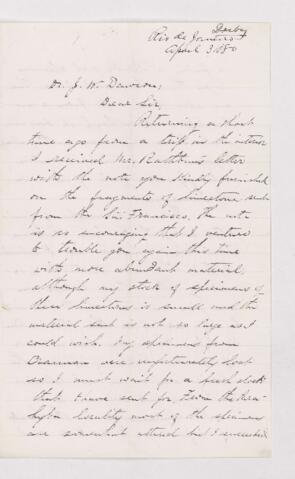 Derby
Rio de Janeiro
April 3 '80
Dr. J. W. Dawson,
Dear Sir,
Returning a short
time ago from a trip in the interior
I received Mr. Rathbun's letter
with the note you kindly furnished
on the fragments of limestone sent
from the San Francisco. The note
is so encouraging that I venture
to trouble you again this time
with more abundant material,
although my stock of specimens of
these limestones is small and the
material sent is not so large as I
could wish. My specimens from
were unfortunately lost
so I must wait for a fresh stock
that I have sent for. From the
locality most of the specimens
are somewhat altered but I succeeded